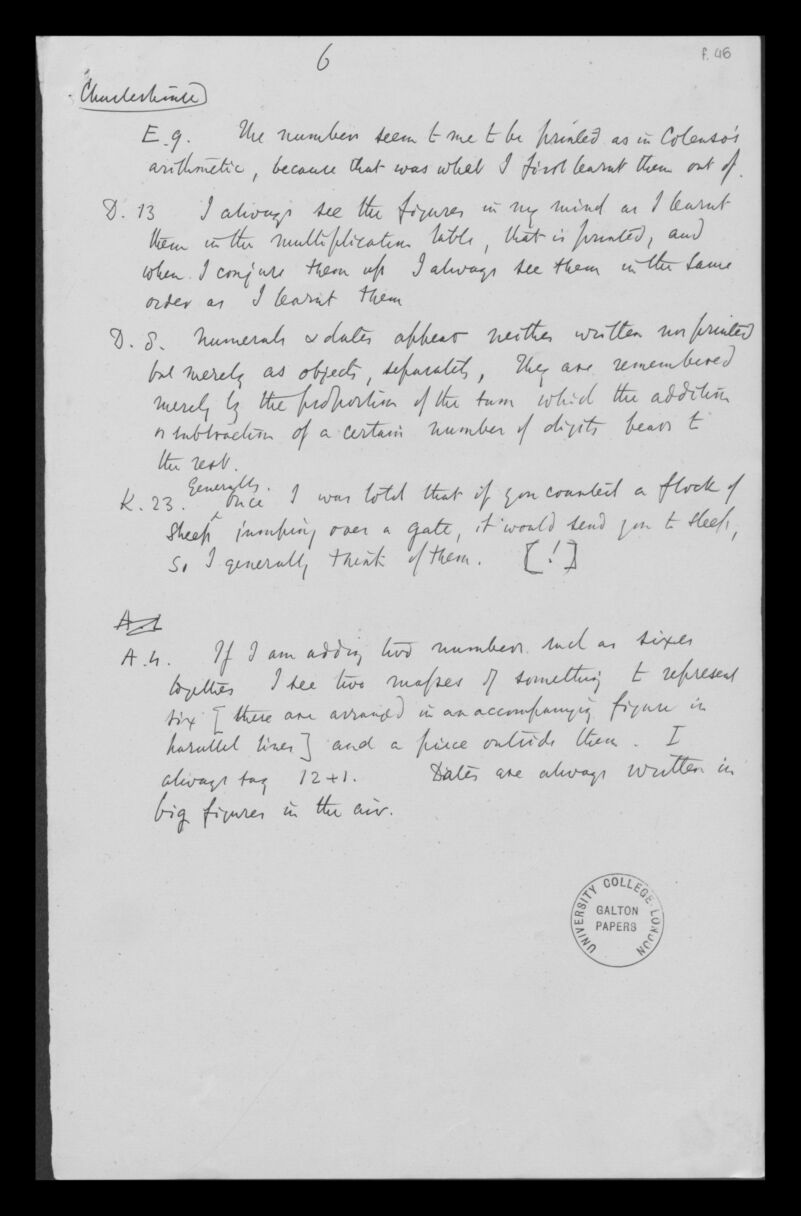 6
f. 46
Charterhouse
E. 9. The numbers seem to me to be printed as in Colenso's
arithmetic, because that was what I first learnt them out of.
D. 13 I always see the figures in my mind as I learnt
them in the multiplication table, that is printed, and
when I conjure them up I always see them in the same
order as I learnt them
D. 8. Numerals & dates appear neither written nor printed
but merely as objects, separately, They are remembered
merely by the proportion of the sum which the addition
or subtraction of a certain number of digits bears to
the rest.
Generally.
K. 23. Once I was told that if you counted a flock of
sheep jumping over a gate, it would send you to sleep,
so I generally think of them. [!]
A. 4. If I am adding two numbers such as sixes
together I see two masses of something to represent
six [these are arranged in an accompanying figure in
parallel lines] and a piece outside them. I
always say 12+1. Dates are always written in
big figures in the air.
UNIVERSITY COLLEGE LONDON
GALTON
PAPERS